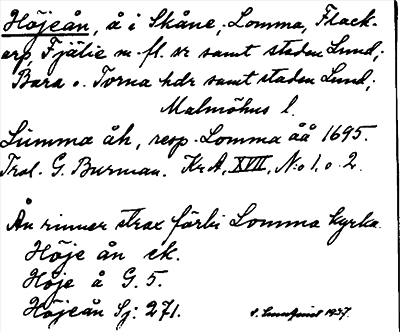 Höjeån, å i Skåne, Lomma, Flack-
arp, Fjälie m. fl. sr samt staden Lund;
Bara o. Torna hdr samt staden Lund;
Malmöhus l.
Lumma åh, resp. Lomma åå 1695.
Trol. G. Burman. Kr A, XVII, N:o 1, o 2.
Ån rinner strax förbi Lomma kyrka.
Höje ån ek.
Höje å G. 5.
Höjeån Sj: 271.
S. Lundquist 1937.